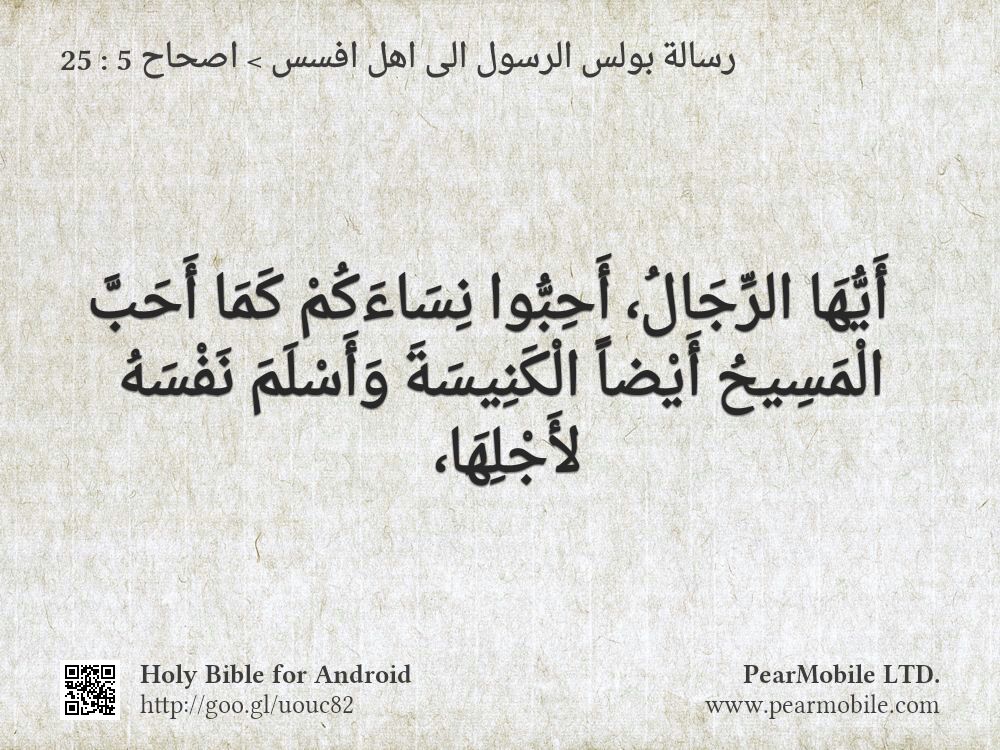 رسالة بولس الرسول الى اهل افسس > اصحاح 5 : 25
أَيُّهَا الرِّجَالُ، أَحِبُّوا نِسَاءَكُمْ كَمَا أَحَبَّ
الْمَسِيحُ أَيْضاً الْكَنِيسَةَ وَأَسْلَمَ نَفْسَهُ
لأَجْلِهَا،
Holy Bible for Android
http://goo.gl/uouc82
PearMobile LTD.
www.pearmobile.com